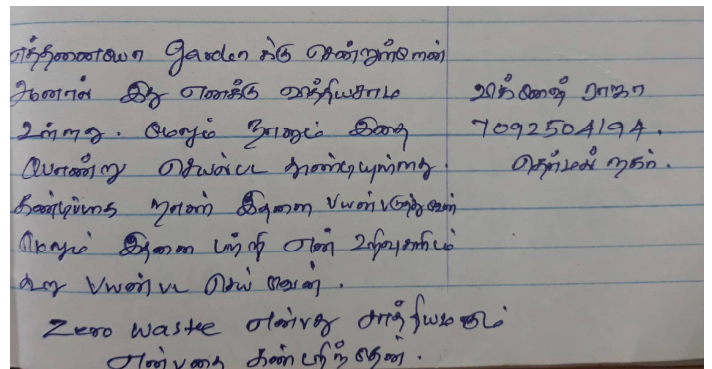 எத்தனையோ Garden க்கு சென்றுள்ளேன்
ஆனால் இது எனக்கு வித்தியசாம
உள்ளது. மேலும் நானும் இதை
போன்று செயல்பட தூண்டியுள்ளது.
கண்டிப்பாக நான் இதனை பயன்படுத்துவேன்
மேலும் இதனை பற்றி என் உறவுகளிடம்
கூறு பயன்பட செய்வேன்.
Zero waste என்பது சாத்தியமாகும்
என்பதை கண்டறிந்தேன்.
விக்னேஷ் ராஜா
7092504194.
தெர்மல் நகர்.